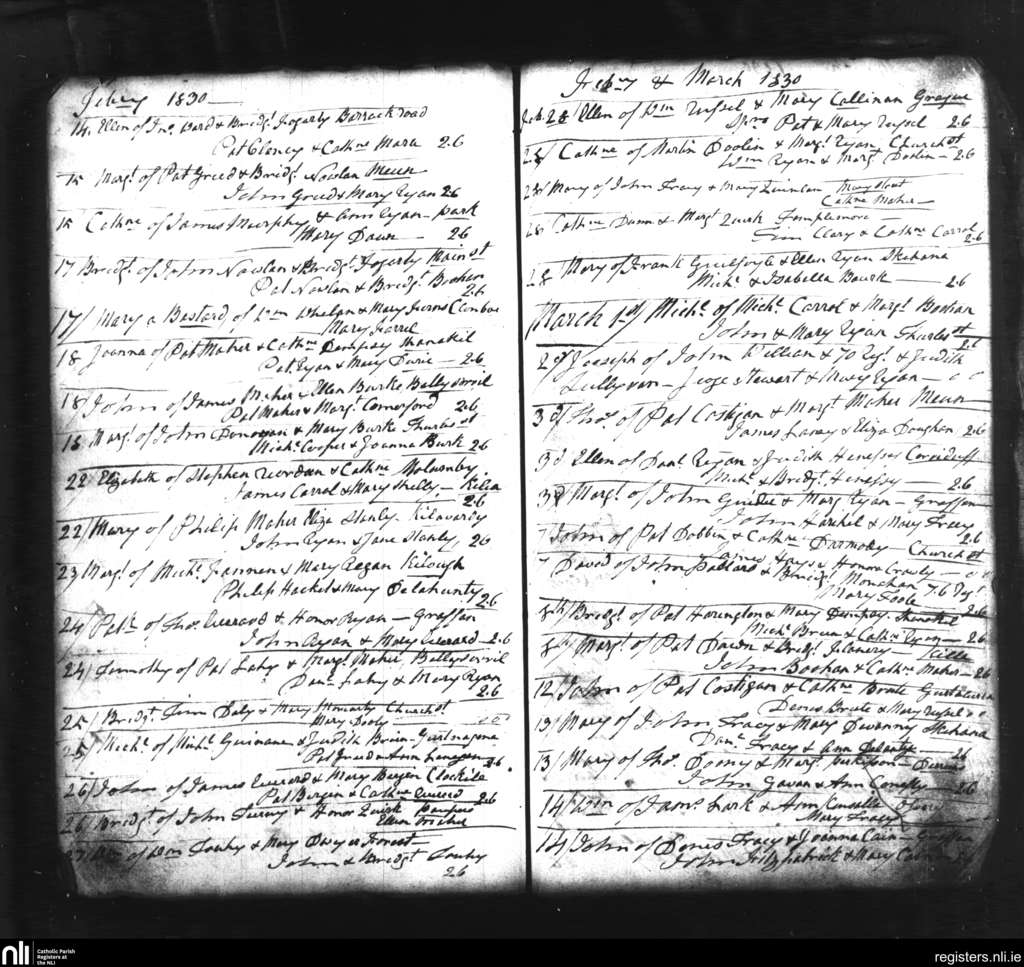 Feb:ry 1830
14. Ellen of Jno. Bard & Bridgt. Fogarty Barrack road
Pat Clancy & Cathne Mara 2.6
15 Margt. of Pat Greed & Bridgt. Nowlan Meun
John Greed & Mary Ryan 2.6
15 Cathne of James Murphy & Ann Ryan - park
Mary Daun - 2.6
17 Bridgt. of John Nowlan & Bridgt. Fogarty Main st
Pat Nowlan & Bridgt. Bohan
2.6
17/ Mary a Bastard of Wm Whelan & Mary
Mary Farrel
18 Joanna of Pat Maher & Cathne Dempsy Shanakil
Pat Ryan & Mary - 2.6
18/ John of James Maher & Ellen Burke Ballysorril
Pat Maher & Margt. Comerford 2.6
18 Margt. of John Donovan & Mary Burke Thurles st
Michl. Cooper & Joanna Burk 2.6
22 Elizabeth of Stephen Reordan & Cathne
James Carrol & Mary Shelly - Kilea
2.6
22/ Mary of Philip Maher Eliza Stanly - Kilavardy
John Ryan & Jane Stanly 2.6
23/ Margt. of Michl. Fannen & Mary Regan Kilough
Philip Hackel & Mary Delahunty
2.6
24/ Patk. of Thos. Everard & Honor Ryan - Graffan
John Ryan & Mary Everard - 2.6
24/ Timothy of Pat Fahy & Margt. Maher Ballysorril
Danl. Fahy & Mary Ryan
2.6
25/ Bridgt. Tim Daly & Mary Moriarty Church st
Mary Dooly
25/ Michl. of Michl. Guinane & Judith Brien
Pat & Ann 2.6
26/ John of James Everard & Mary Bergin Clockila
Pat Bergin & Cathne Everard 2.6
26 Bridgt. of John & Honor Quirk
Ellen Maher
27 Wm of Wm Fouhy & Mary Dwyer Forrest
John & Bridgt Fouhy
2.6
Feb:ry & March 1830
Feb. 28 Ellen of Wm Russel & Mary Callinan Graigue
Sprs Pat & Mary Russel 2.6
28/ Cathne of Martin Doolin & Margt. Ryan Church st
Wm Ryan & Margt. Doolin - 2.6
28/ Mary of John Tracy & Mary Quinlan
Cathne Maher
28 Cathne Dunn & Margt Quirk Templemore
Tim Clary & Cathne Carrol
2.6
28 Mary of Frank Guilfoyle & Ellen Ryan Skehana
Michl. & Isabella Bourk - 2.6
March 1st Michl. of Michl. Carrol & Margt. Bohan
John & Mary Ryan Thurles st
2.6
2d/ Joseph of John & 70 Regt. & Judith
Sullyvan - Stewart & Mary Ryan -
3d/ Thos. of Pat Costigan & Margt Maher Meun
James & Eliza Doughan 2.6
3d Ellen of Danl. Regan & Judith Henessy
Michl. & Bridgt. Henessy - 2.6
3d/ Margt. of John & Mary Ryan - Graffan
John Harshel & Mary Tracy
2.6
7 John of Pat Dobbin & Cathne Darmody - Church st
James & Honora Crowly
7 David of John & Bridgt. Monehan 76 Regt
Mary Toole 2.6
8th Bridgt. of Pat Harington & Mary Dempsy Shanakil
Michl. Brien & Cathne Ryan - 2.6
8th Margt. of Pat Dawn & Bridgt. - Killa
John Bohan & Cathne Maher - 2.6
12/ John of Pat Costigan & Cathne Brute
Denis Brute & Mary Russel
13/ Mary of John Tracy & Mary Skehana
Danl. Tracy & Ann Delanty 2.6
13/ Mary of Thos. & Margt.
John Gavan & Ann 2.6
14/ Wm of James Lark & Ann
Mary Tracy
14/ John of Denis Tracy & Joanna Cain - Graffan
John Fitzpatrick & Mary
nli
Catholic Parish
Registers at
the NLI
registers.nli.ie